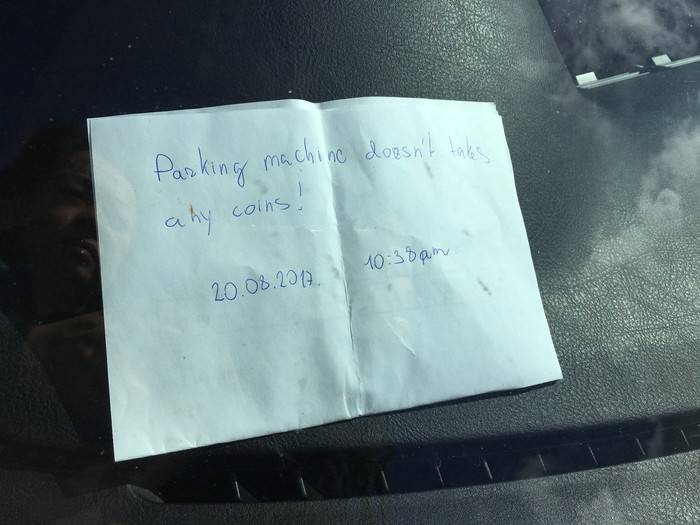 Parking machine doesn't takes
any coins!
20.08.2017. 10:38am